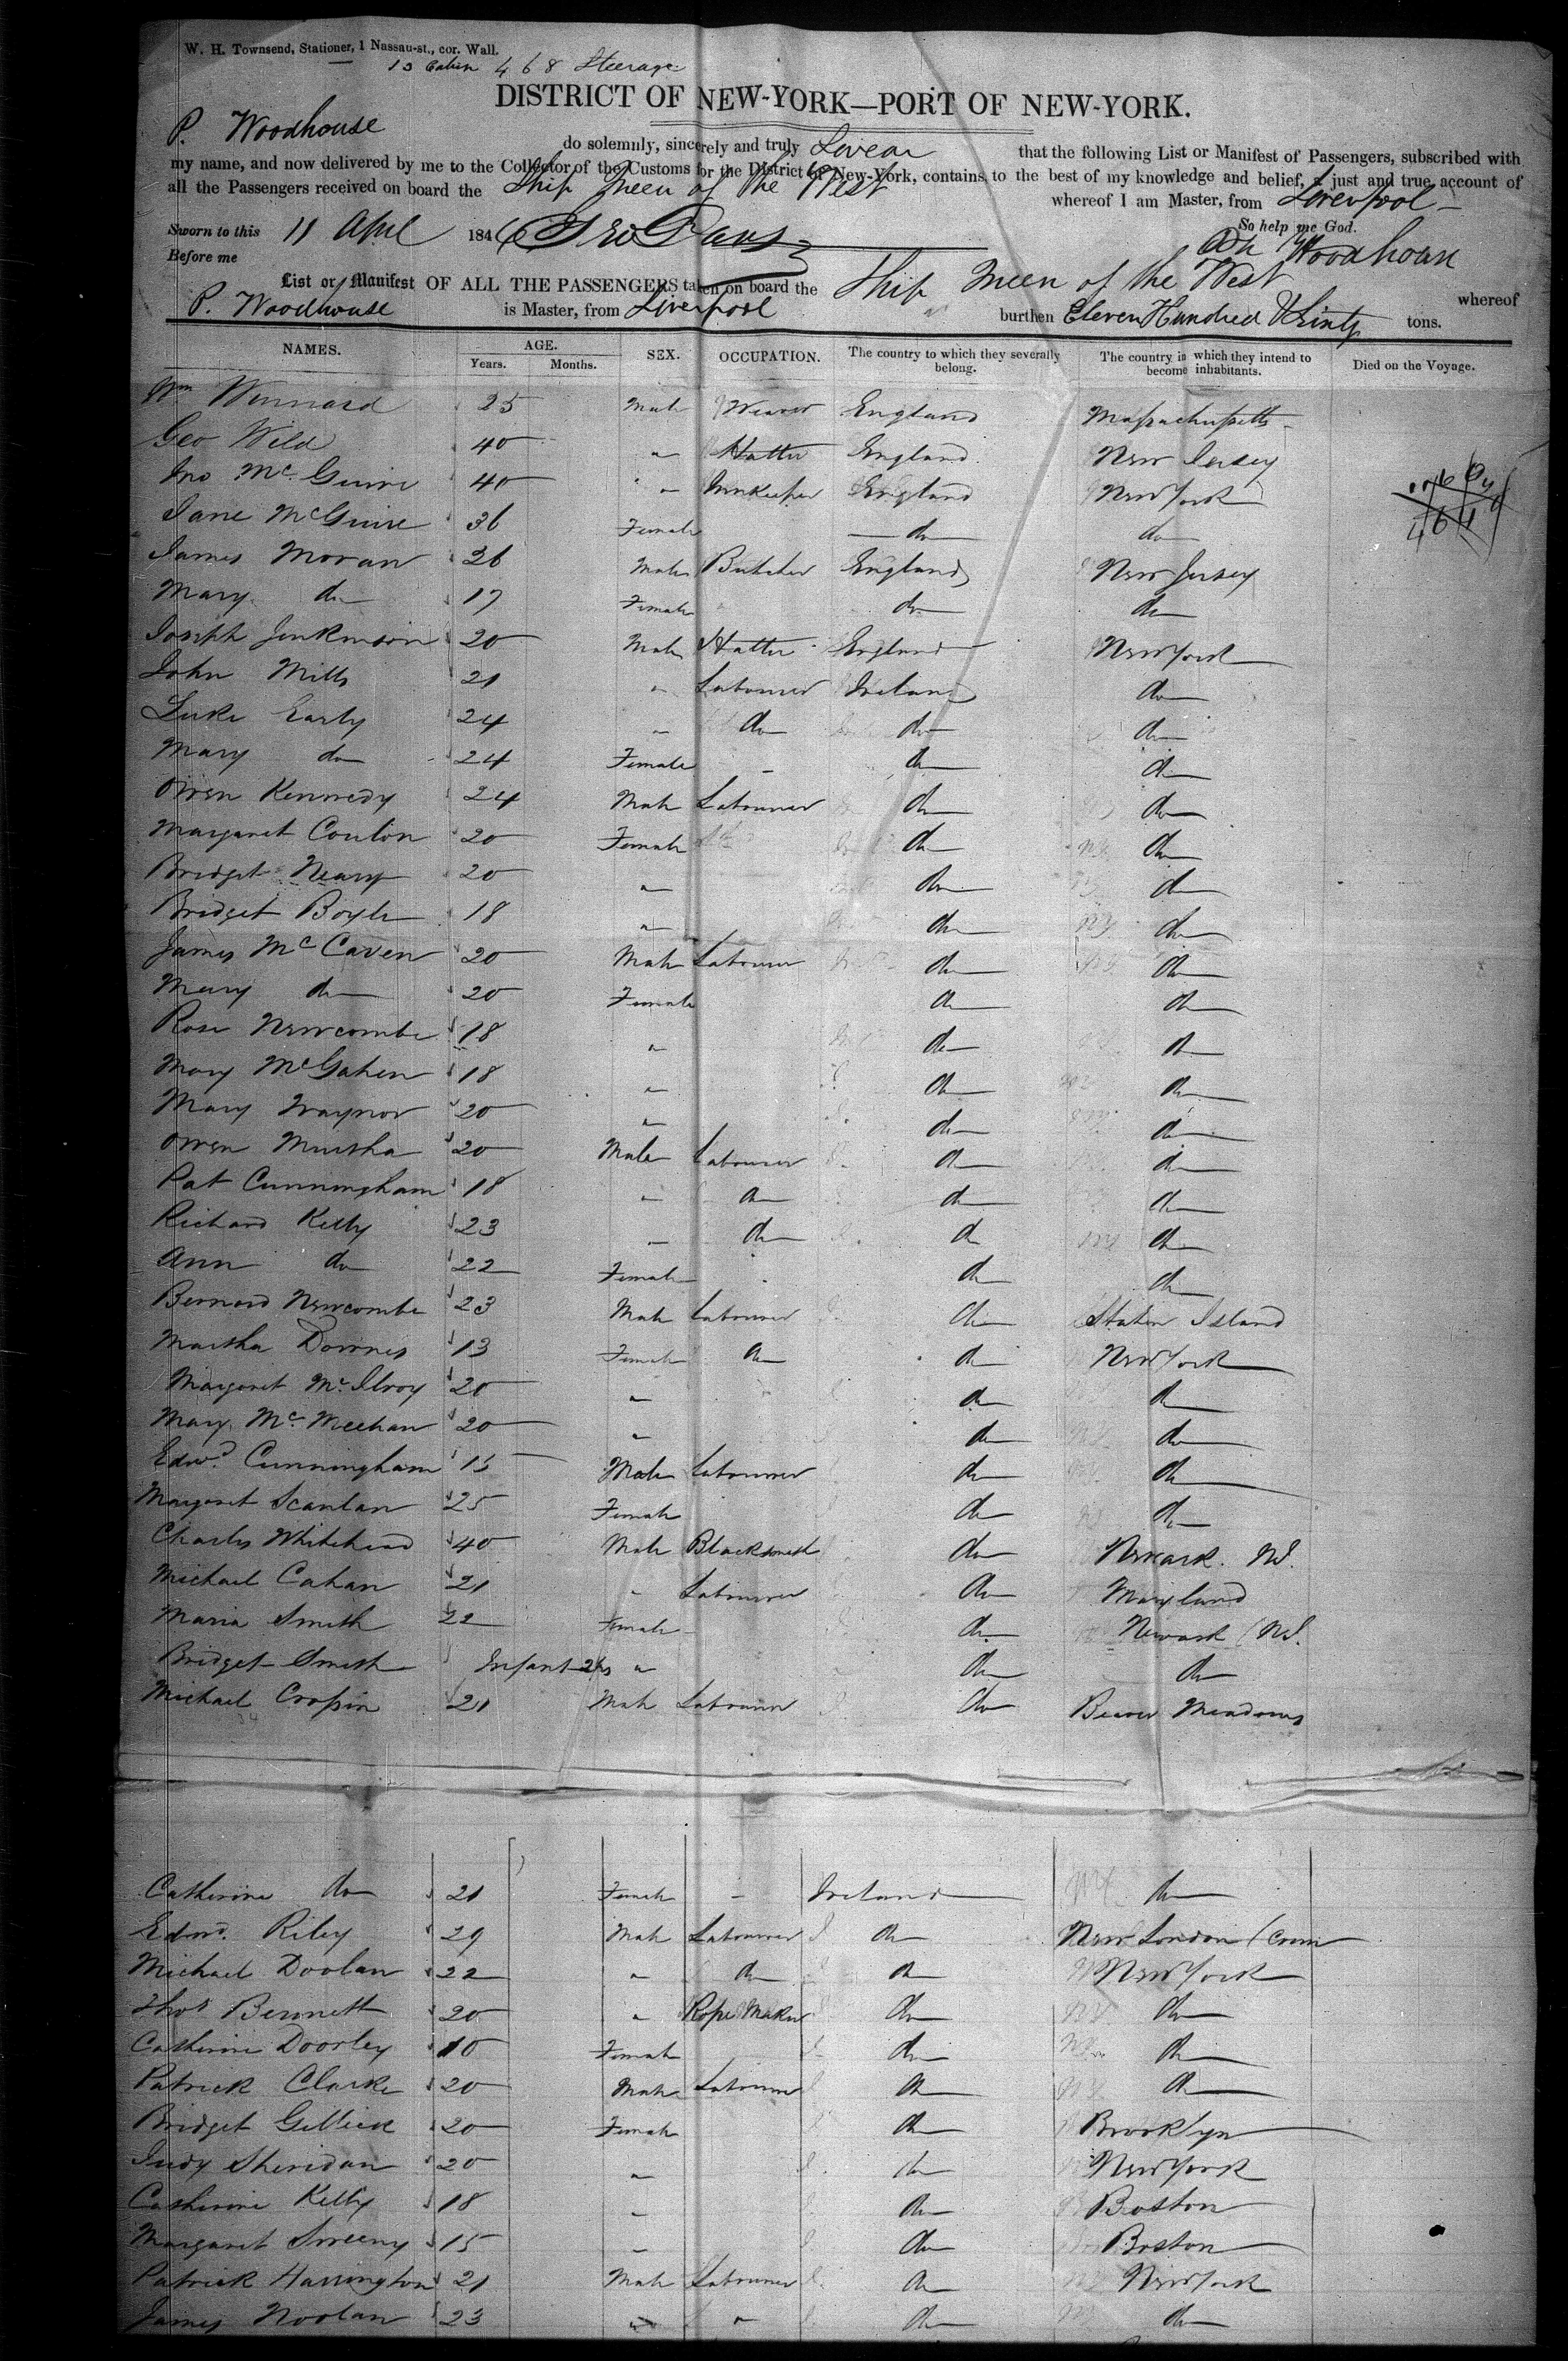 W. H. Townsend, Stationer, 1 Nassau-st., cor. Wall.
13 Cabin 468 Steerage
DISTRICT OF NEW-YORK—PORT OF NEW-YORK.
P. Woodhouse do solemnly, sincerely and truly Swear that the following List or Manifest of Passengers, subscribed with
my name, and now delivered by me to the Collector of the Customs for the District of New-York, contains, to the best of my knowledge and belief, a just and true account of
all the Passengers received on board the Ship Queen of the West whereof I am Master, from Liverpool
Sworn to this 11 April 1846 So help me God.
Before me Woodhouse
List or Manifest OF ALL THE PASSENGERS taken on board the Ship Queen of the West whereof
P. Woodhouse is Master, from Liverpool burthen Eleven Hundred & Sixty tons.
NAMES. AGE. SEX. OCCUPATION. The country to which they severally belong. The country in which they intend to become inhabitants. Died on the Voyage.
Years. Months.
Wm Winnard 25 Male Weaver England Massachusetts
Geo Wild 40 " Hatter England New Jersey
Jno McGuire 40 " Innkeeper England New York
Jane McGuire 36 Female do do
James Moran 26 Male Butcher England New Jersey
Mary do 17 Female do do
Joseph Jenkinson 20 Male Hatter England New York
John Mills 21 " Labourer Ireland do
Luke Early 24 " do do do
Mary do 24 Female do do
Owen Kennedy 24 Male Labourer do do
Margaret Conlon 20 Female do do
Bridget Neary 20 " do do
Bridget Boyle 18 " do do
James McCaven 20 Male Labourer do do
Mary do 20 Female do do
Rose Newcombe 18 " do do
Mary McGahen 18 " do do
Mary Traynor 20 " do do
Owen Murtha 20 Male Labourer do do
Pat Cunningham 18 " do do do
Richard Kelly 23 " do do do
Ann do 22 Female do do
Bernard Newcombe 23 Male Labourer do Staten Island
Martha Downes 13 Female do do New York
Margaret McIlroy 20 " do do
Mary McMeehan 20 " do do
Edwd. Cunningham 15 Male Labourer do do
Margaret Scanlan 25 Female do do
Charles Whitehead 40 Male Blacksmith do Newark. NJ.
Michael Cahan 21 " Labourer do Maryland
Maria Smith 22 Female do Newark (NJ.
Bridget Smith Infant " do do
Michael Crossin 21 Male Labourer do Beaver Meadows
Catherine do 21 Female Ireland do
Edwd. Riley 29 Male Labourer do New London (Conn
Michael Doolan 22 " do do New York
Thos Bennett 20 " Rope Maker do do
Catherine Doorley 10 Female do do
Patrick Clarke 20 Male Labourer do do
Bridget Gillick 20 Female do Brooklyn
Judy Sheridan 20 " do New York
Catherine Kelly 18 " do Boston
Margaret Sweeny 15 " do Boston
Patrick Harrington 21 Male Labourer do New York
James Noolan 23 " " do do